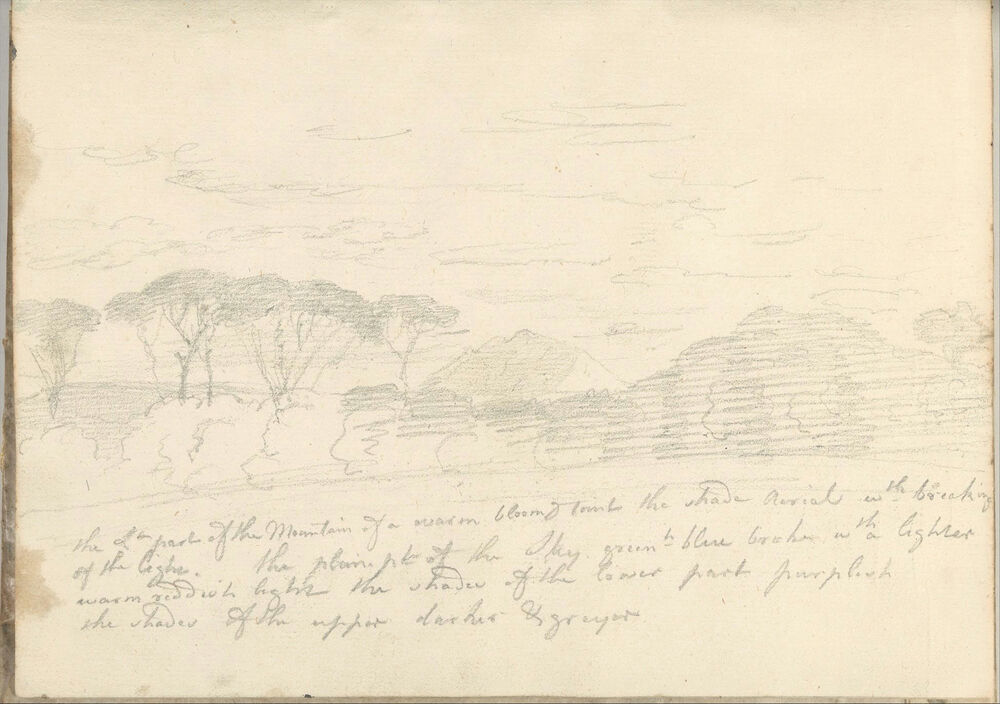 the Lt. part of the Mountain of a warm bloomy tint the shade Aerial wth breaking
of the light. the plain pt of the Sky greenh blue broken wth a lighter
warm reddish light the shade of the lower part purplish
the shades of the upper darker & greyer